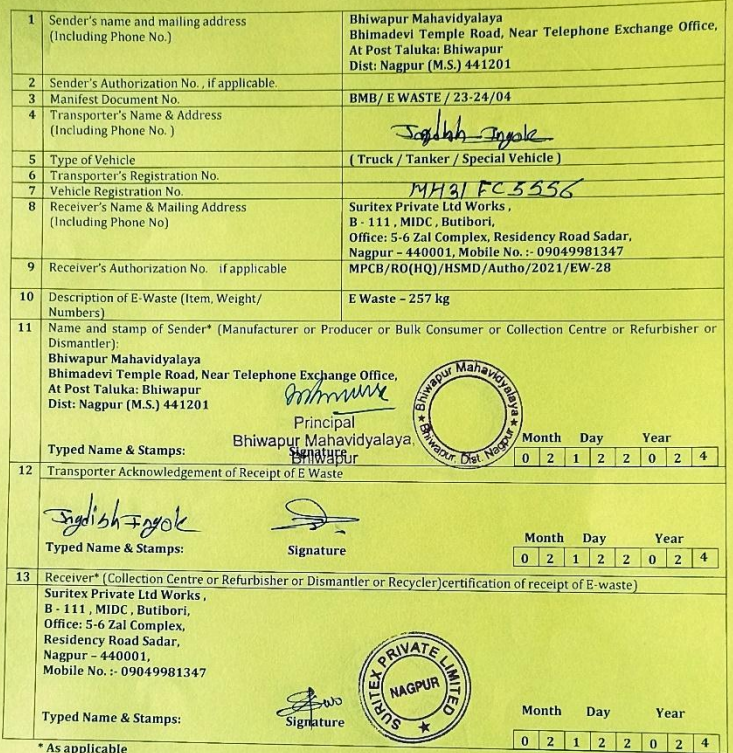 1 Sender's name and mailing address
(Including Phone No.)
Bhiwapur Mahavidyalaya
Bhimadevi Temple Road, Near Telephone Exchange Office,
At Post Taluka: Bhiwapur
Dist: Nagpur (M.S.) 441201
2 Sender's Authorization No. , if applicable.
3 Manifest Document No. BMB/ E WASTE / 23-24/04
4 Transporter's Name & Address
(Including Phone No. )
Jagdish Ingole
5 Type of Vehicle ( Truck / Tanker / Special Vehicle )
6 Transporter's Registration No.
7 Vehicle Registration No. MH31 FC 5556
8 Receiver's Name & Mailing Address
(Including Phone No)
Suritex Private Ltd Works ,
B - 111 , MIDC , Butibori,
Office: 5-6 Zal Complex, Residency Road Sadar,
Nagpur - 440001, Mobile No. :- 09049981347
9 Receiver's Authorization No. if applicable MPCB/RO(HQ)/HSMD/Autho/2021/EW-28
10 Description of E-Waste (Item, Weight/
Numbers)
E Waste – 257 kg
11 Name and stamp of Sender* (Manufacturer or Producer or Bulk Consumer or Collection Centre or Refurbisher or
Dismantler):
Bhiwapur Mahavidyalaya
Bhimadevi Temple Road, Near Telephone Exchange Office,
At Post Taluka: Bhiwapur
Dist: Nagpur (M.S.) 441201
Principal
Bhiwapur Mahavidyalaya,
Bhiwapur
★ Bhiwapur Mahavidyalaya ★
Bhiwapur, Dist. Nagpur
Typed Name & Stamps: Signature
Month Day Year
0 2 1 2 2 0 2 4
12 Transporter Acknowledgement of Receipt of E Waste
Jagdish Ingole
Typed Name & Stamps: Signature
Month Day Year
0 2 1 2 2 0 2 4
13 Receiver* (Collection Centre or Refurbisher or Dismantler or Recycler)certification of receipt of E-waste)
Suritex Private Ltd Works ,
B - 111 , MIDC , Butibori,
Office: 5-6 Zal Complex,
Residency Road Sadar,
Nagpur – 440001,
Mobile No. :- 09049981347
SURITEX PRIVATE LIMITED ★
NAGPUR
Typed Name & Stamps: Signature
Month Day Year
0 2 1 2 2 0 2 4
* As applicable